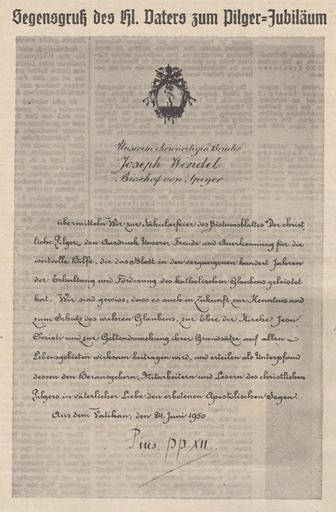 Segensgruß des Hl. Vaters zum Pilger-Jubiläum
Unserem ehrwürdigen Bruder
Joseph Wendel
Bischof von Speyer
übermitteln Wir zur Säkularfeier des Bistumsblattes "Der christ
liche Pilger, den Ausdruck Unserer Freude und Anerkennung für die
wertvolle Hilfe, die das Blatt in den vergangenen hundert Jahren
der Erhaltung und Förderung des katholischen Glaubens geleistet
hat. Wir sind gewiss, dass es auch in Zukunft zur Kenntnis und
zum Schutz des wahren Glaubens, zur Ehre der Kirche Jesu
Christi und zur Geltendmachung ihrer Grundsätze auf allen
Lebensgebieten wirksam beitragen wird, und erteilen als Unterpfand
dessen den Herausgebern, Mitarbeitern und Lesern des christlichen
Pilgers in väterlicher Liebe den erbetenen Apostolischen Segen.
Aus dem Vatikan, den 24. Juni 1950
Pius. pp. XII.